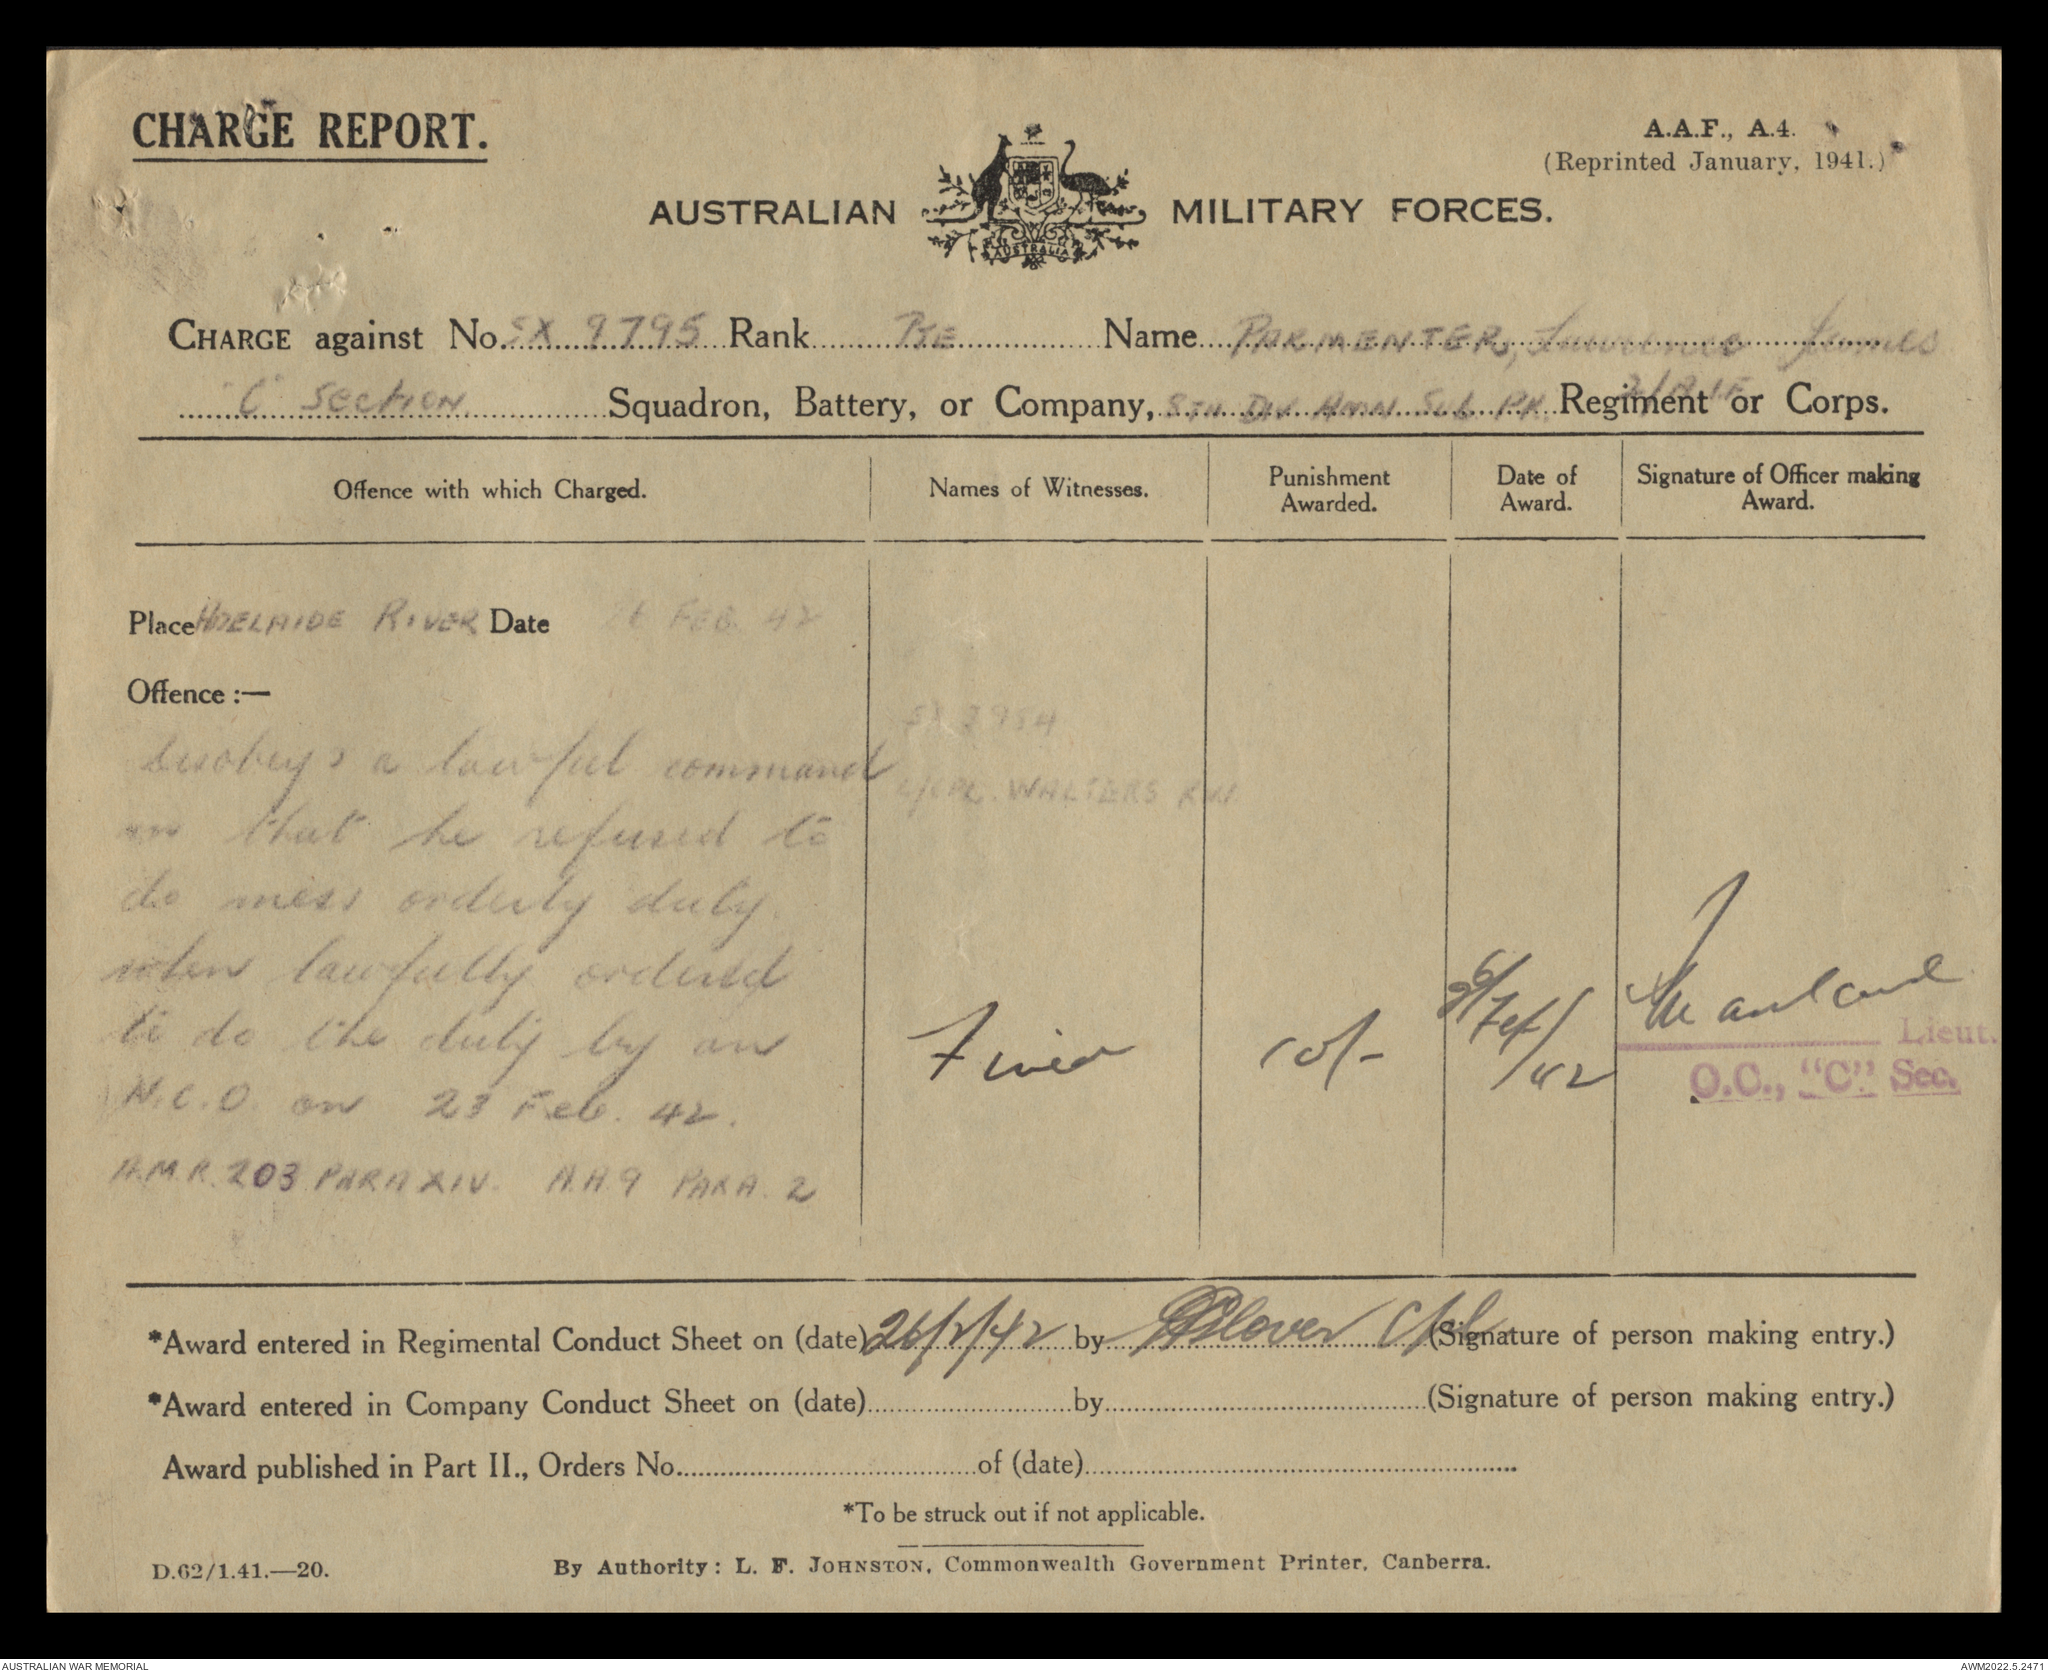 CHARGE REPORT.
A.A.F., A.4.
(Reprinted January, 1941.)
AUSTRALIAN MILITARY FORCES.
AUSTRALIA
CHARGE against No. SX 9795 Rank PTE Name PARMENTER, Lawrence James
"C" Section Squadron, Battery, or Company, 8TH DIV AMN SUB PK. Regiment or Corps. A.I.F.
Offence with which Charged. Names of Witnesses. Punishment Awarded. Date of Award. Signature of Officer making Award.
Place ADELAIDE RIVER Date 26 FEB. 42
Offence :—
SX 3954
Disobeys a lawful command
L/CPL. WALTERS
in that he refused to
do mess orderly duty
when lawfully ordered
to do the duty by an
Fined 10/- 26/Feb/42
Lieut.
O.C., "C" Sec.
N.C.O. on 23 Feb. 42.
A.M.R. 203 PARA XIV. A.A.9 PARA. 2
*Award entered in Regimental Conduct Sheet on (date) 26/2/42 by Glover Cpl (Signature of person making entry.)
*Award entered in Company Conduct Sheet on (date) by (Signature of person making entry.)
Award published in Part II., Orders No. of (date)
*To be struck out if not applicable.
D.62/1.41.—20. By Authority: L. F. JOHNSTON, Commonwealth Government Printer, Canberra.
AUSTRALIAN WAR MEMORIAL AWM2022.5.2471